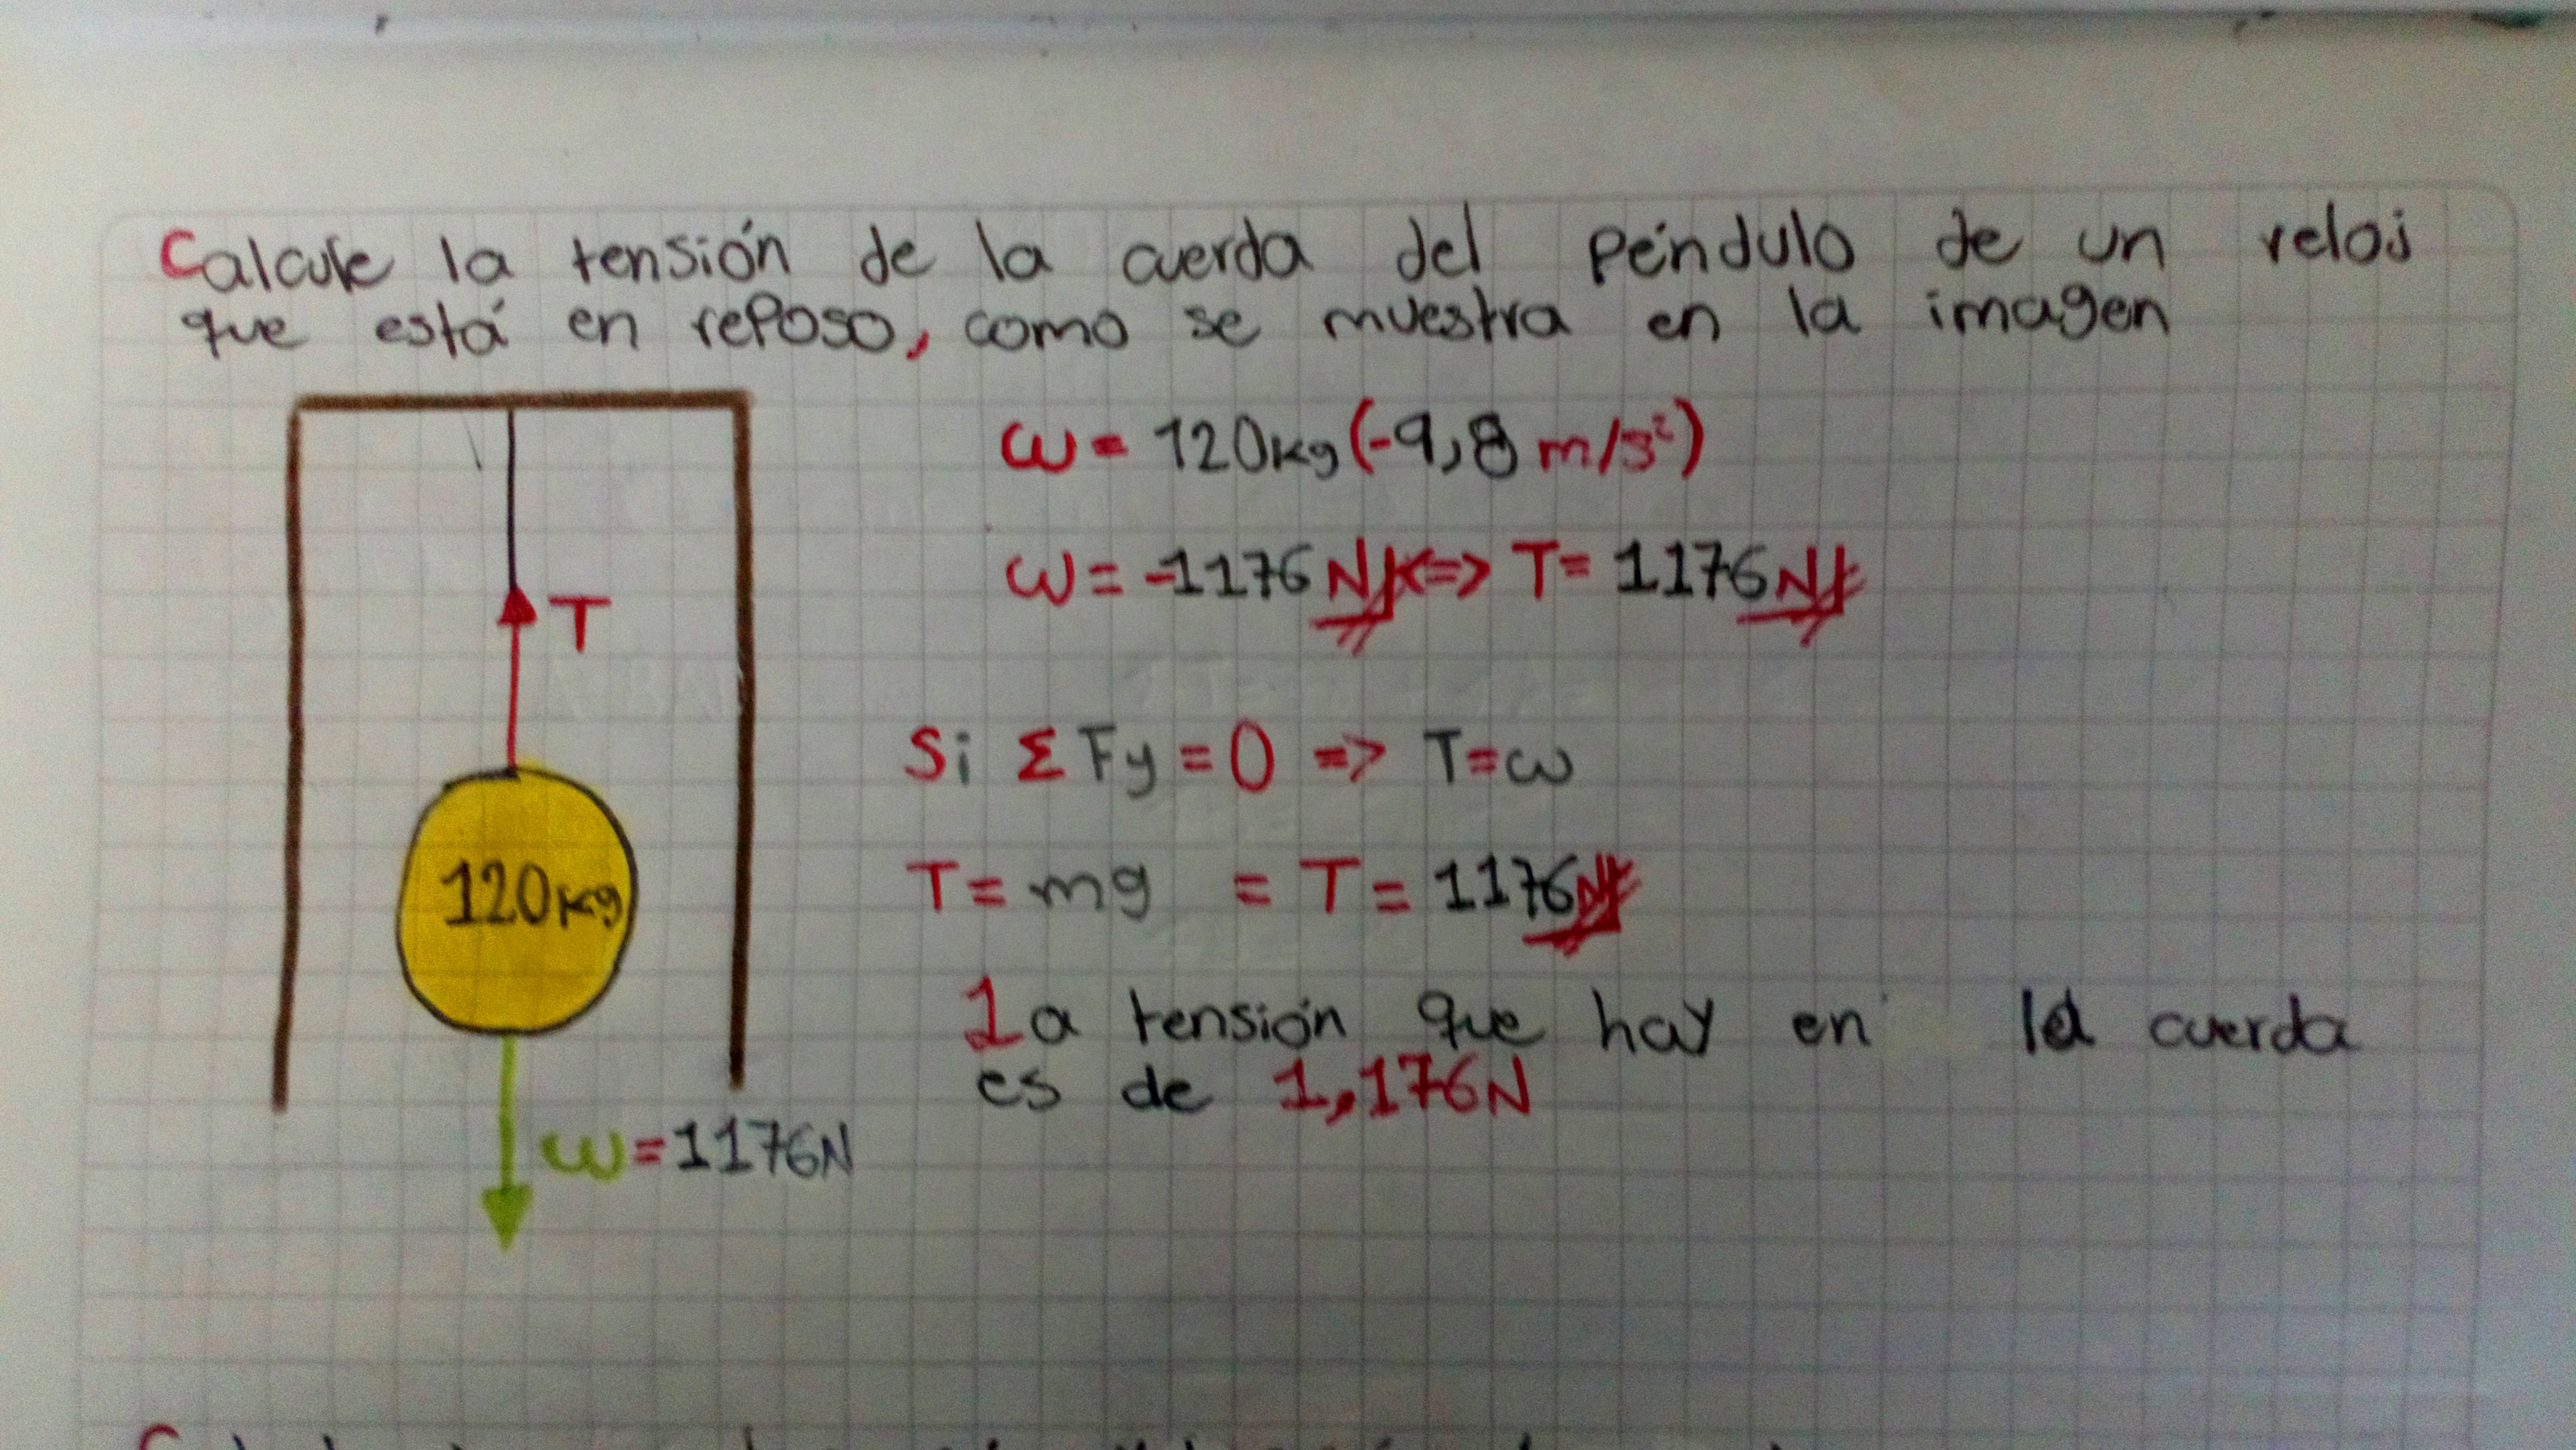 Calcule la tensión de la cuerda del péndulo de un reloj
que está en reposo, como se muestra en la imagen
ω = 120kg (-9,8 m/s²)
ω = -1176 N <=> T = 1176 N
T
Si Σ Fy = 0 => T=ω
120kg
T = mg = T = 1176N
la tensión que hay en la cuerda
es de 1,176N
ω=1176N